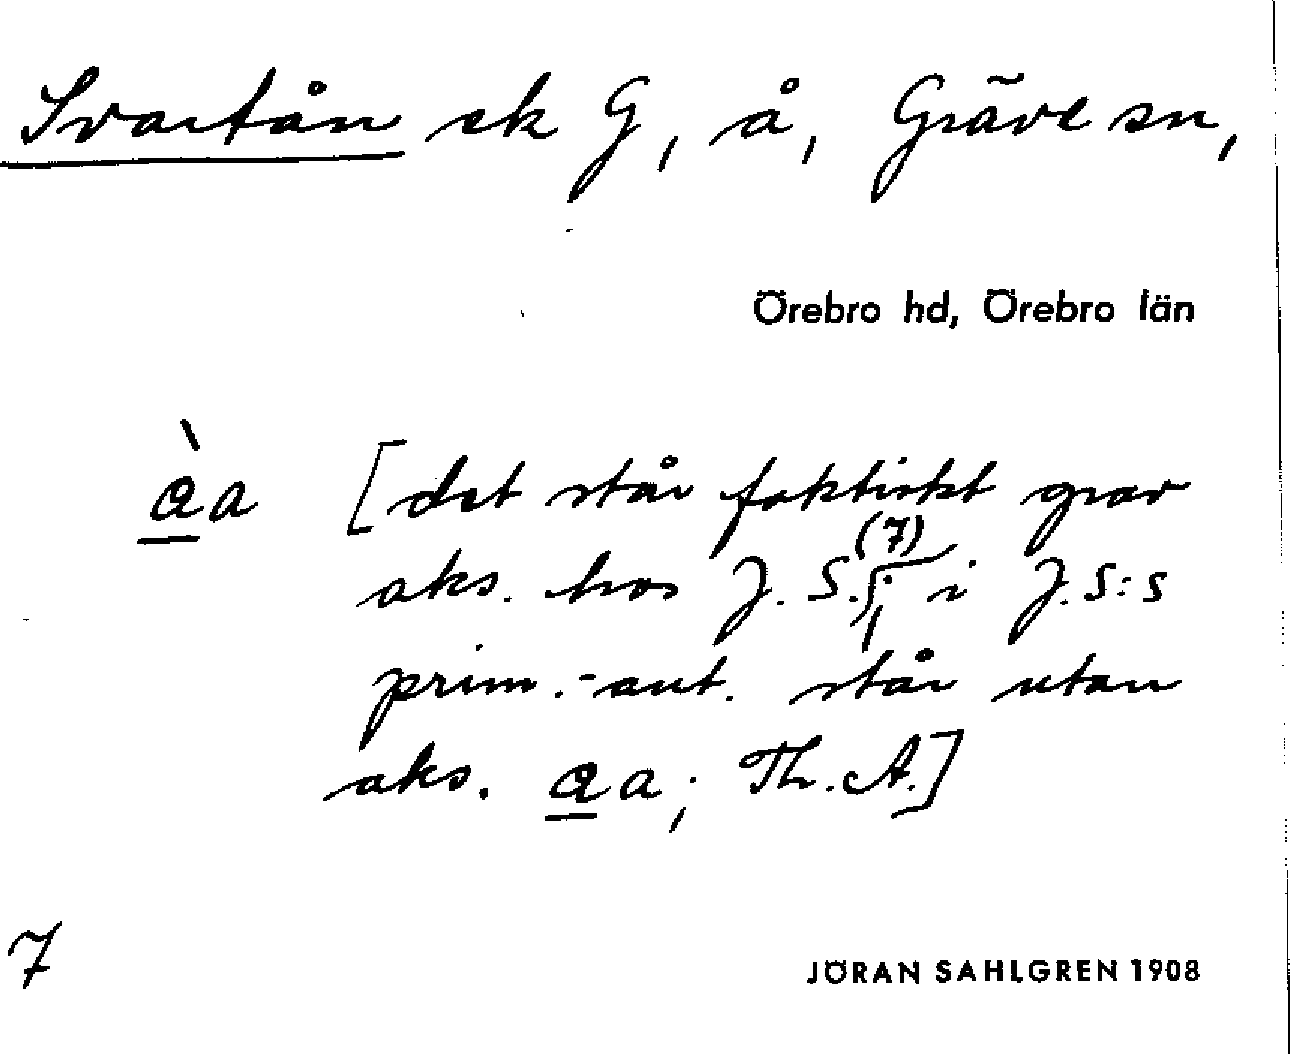 Svartån ek G, å, Gräve sn,
Örebro hd, Örebro län
àa [det står faktiskt grav
aks. hos J. S. (7); i J. S:s
prim.-ant. står utan
aks. aa; Th. A.]
7
JÖRAN SAHLGREN 1908